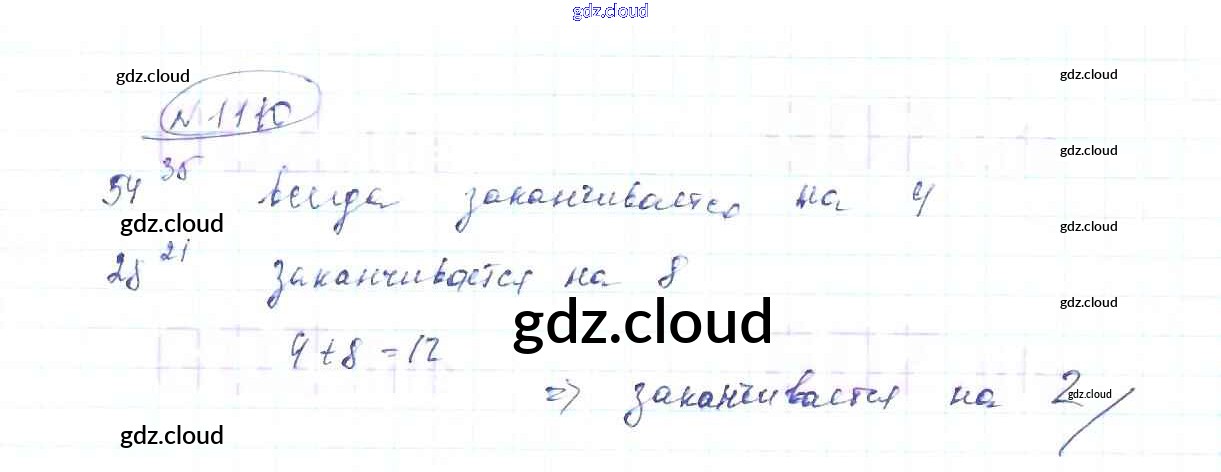 gdz.cloud
gdz.cloud gdz.cloud
N 1110
gdz.cloud
54^35 всегда заканчивается на 4
gdz.cloud gdz.cloud
28^21 заканчивается на 8
gdz.cloud
gdz.cloud
4 + 8 = 12
=> заканчивается на 2
gdz.cloud
gdz.cloud